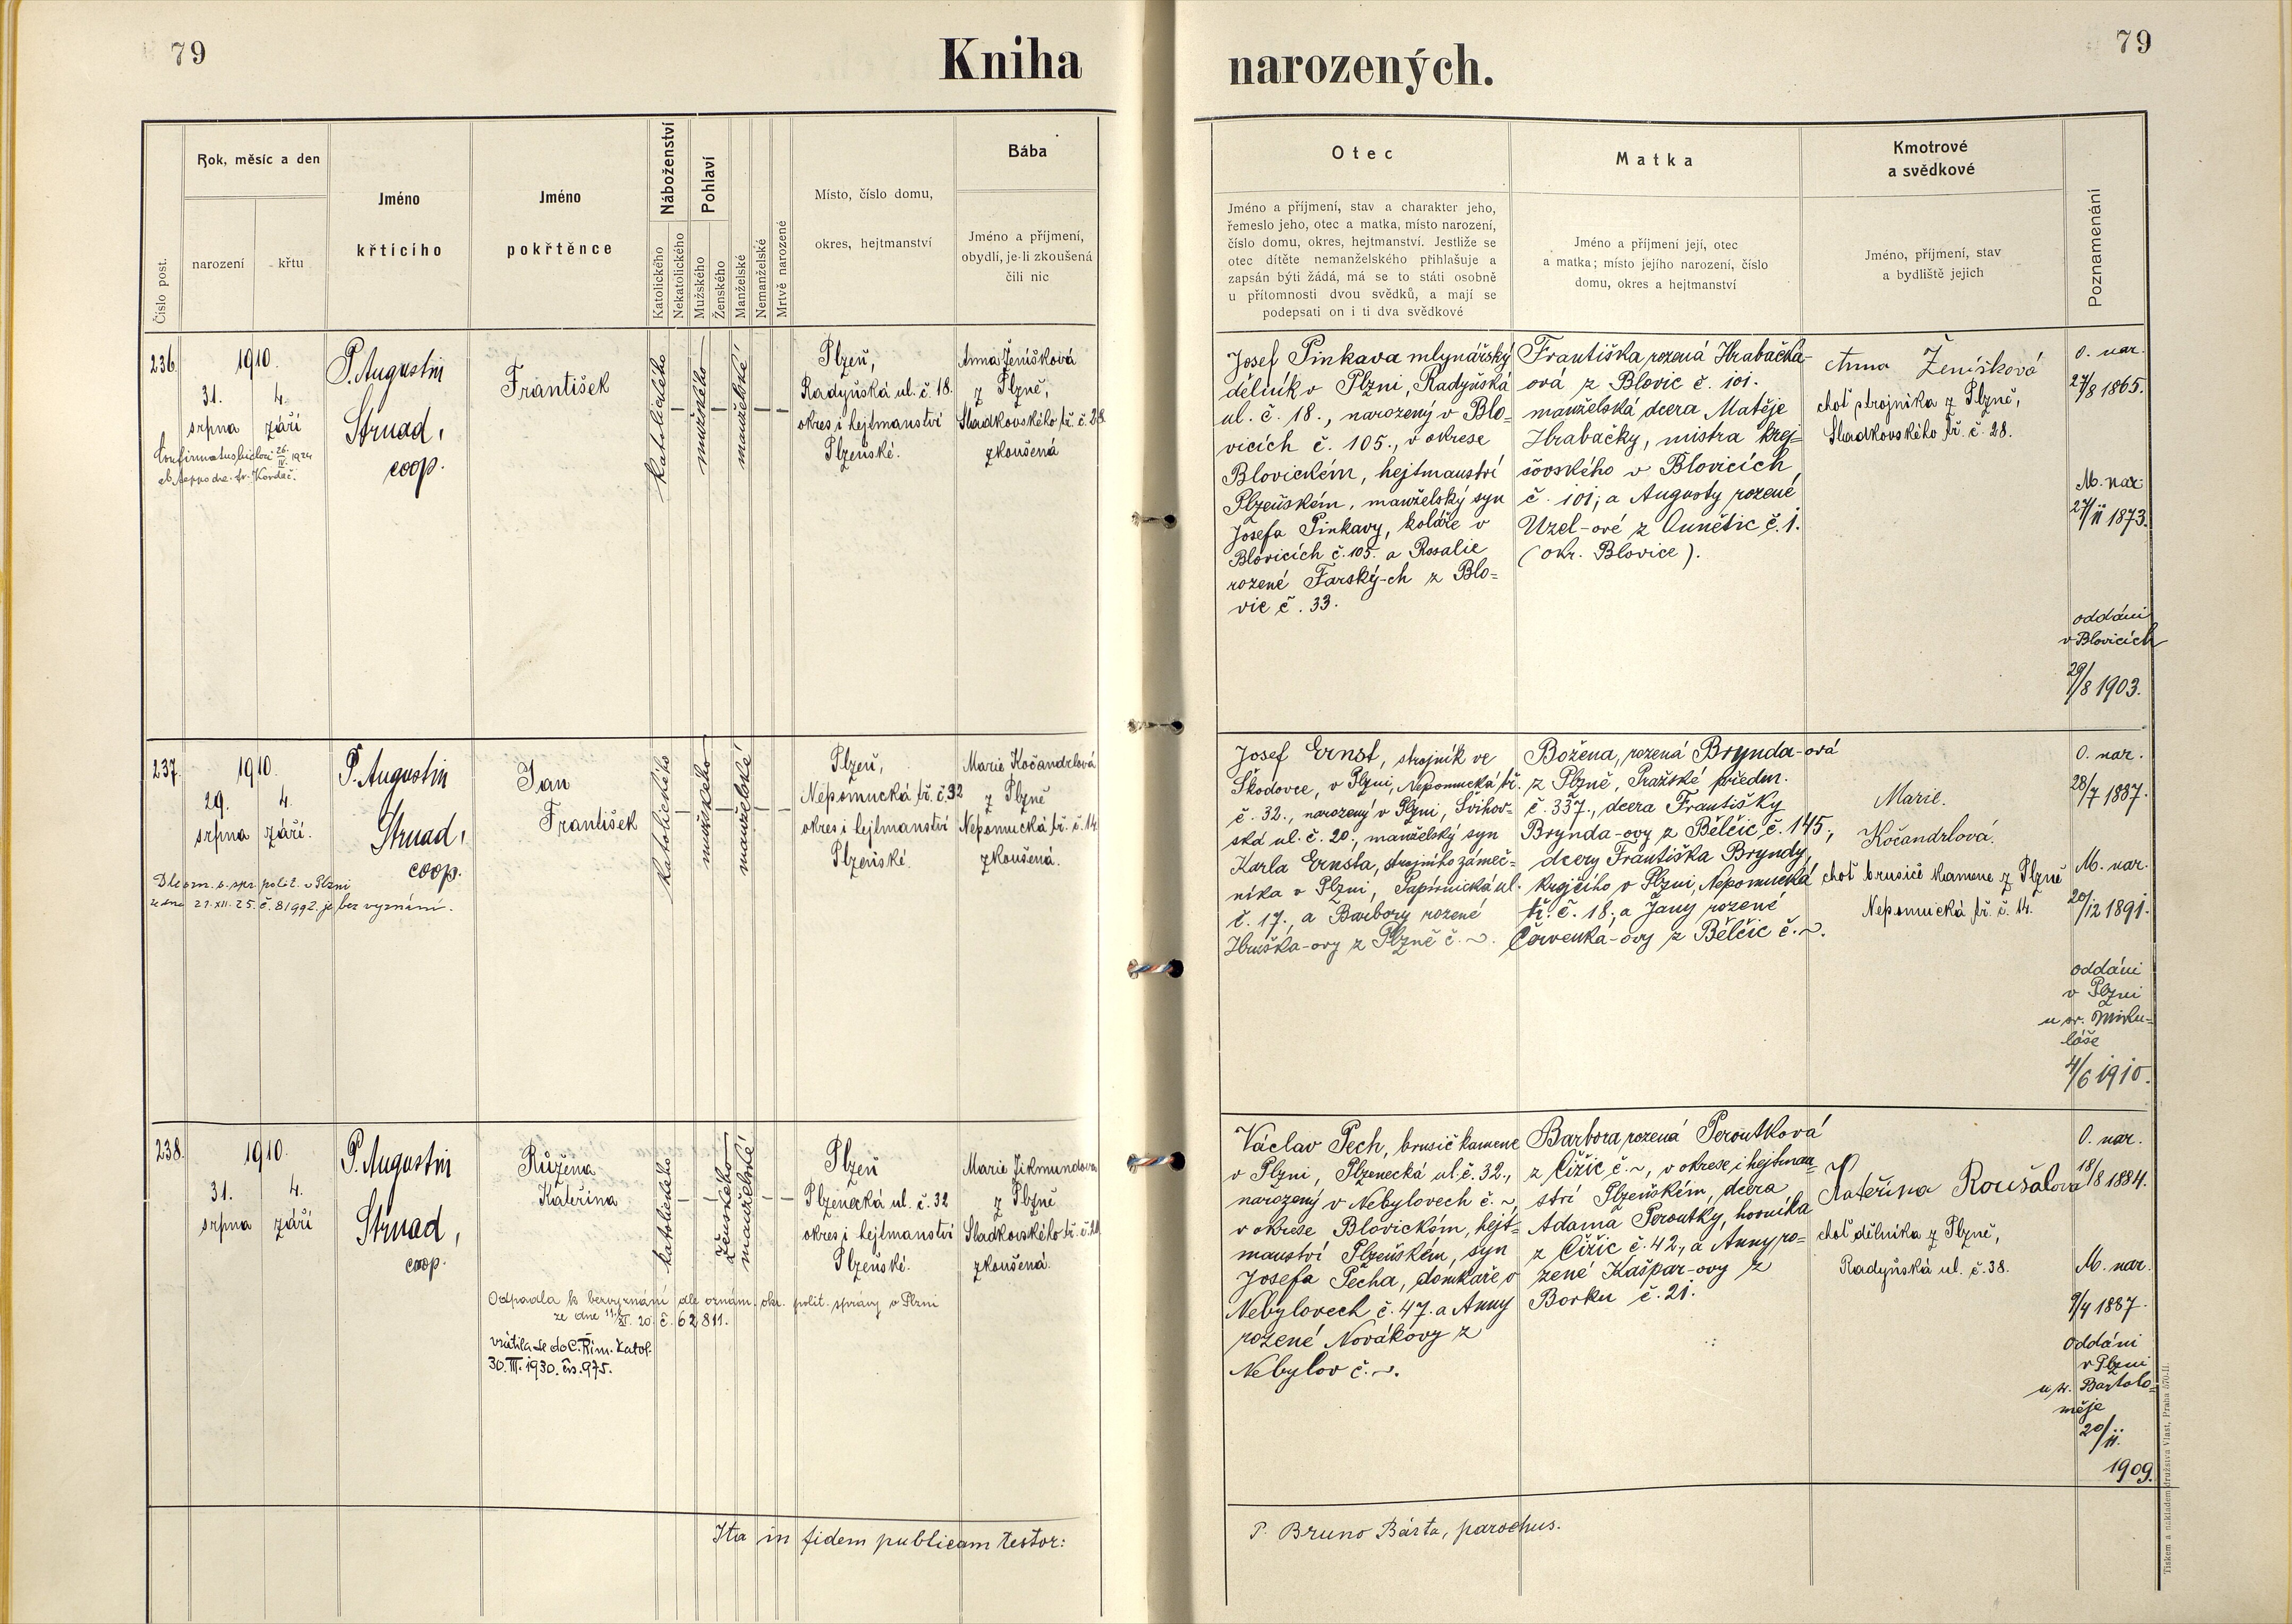 79
Kniha
narozených.
79
Číslo post.
Rok, měsíc a den
narození
křtu
Jméno
křtícího
Jméno
pokřtěnce
Náboženství
Katolického
Nekatolického
Pohlaví
Mužského
Ženského
Manželské
Nemanželské
Mrtvě narozené
Místo, číslo domu,
okres, hejtmanství
Bába
Jméno a příjmení,
obydlí, je-li zkoušená
čili nic
Otec
Jméno a příjmení, stav a charakter jeho,
řemeslo jeho, otec a matka, místo narození,
číslo domu, okres, hejtmanství. Jestliže se
otec dítěte nemanželského přihlašuje a
zapsán býti žádá, má se to státi osobně
u přítomnosti dvou svědků, a mají se
podepsati on i ti dva svědkové
Matka
Jméno a příjmení její, otec
a matka; místo jejího narození, číslo
domu, okres a hejtmanství
Kmotrové
a svědkové
Jméno, příjmení, stav
a bydliště jejich
Poznamenání
236.
1910.
31. 4.
srpna září
P. Augustin
Strnad,
coop.
František
katolického
mužského
manželské
Plzeň,
Radyňská ul. č. 18.
okres i hejtmanství
Plzeňské.
Anna Ženíšková
z Plzně,
Sladkovského tř. č. 28
zkoušená
Josef Pinkava mlynářský
dělník v Plzni, Radyňská
ul. č. 18., narozený v Blo-
vicích č. 105., v okrese
Blovickém, hejtmanství
Plzeňském, manželský syn
Josefa Pinkavy, koláře v
Blovicích č. 105. a Rosalie
rozené Farský-ch z Blo-
vic č. 33.
Františka rozená Hrabačka-
ová z Blovic č. 101.
manželská dcera Matěje
Hrabačky, mistra krej-
čovského v Blovicích
č. 101; a Augusty rozené
Uzel-ové z Chunětic č. 1.
(okr. Blovice).
Anna Ženíšková
choť strojníka z Plzně,
Sladkovského tř. č. 28.
O. nar.
27/8 1865.
M. nar.
27/11 1873.
oddáni
v Blovicích
29/8 1903.
237.
1910.
29. 4.
srpna září.
Dle ozn. o. spr. polit. v Plzni
ze dne 21.XII.25. č. 81992. je bez vyznání.
P. Augustin
Strnad,
coop.
Jan
František
katolického
mužského
manželské
Plzeň,
Nepomucká tř. č. 32
okres i hejtmanství
Plzeňské.
Marie Kočandrlová
z Plzně
Nepomucká tř. č. 14
zkoušená.
Josef Ernst, strojník ve
Škodovce, v Plzni, Nepomucká tř.
č. 32., narozený v Plzni, Švihov-
ská ul. č. 20., manželský syn
Karla Ernsta, strojního zámeč-
níka v Plzni, Papírnická ul.
č. 17., a Barbory rozené
Hruška-ovy z Plzně č. ~.
Božena, rozená Brynda-ová
z Plzně, Pražské předm.
č. 337., dcera Františky
Brynda-ovy z Bělčic č. 145,
dcery Františka Bryndy,
krejčího v Plzni, Nepomucká
tř. č. 18., a Jany rozené
Červenka-ovy z Bělčic č. ~.
Marie.
Kočandrlová.
choť brusiče kamene z Plzně
Nepomucká tř. č. 14.
O. nar.
28/7 1887.
M. nar.
20/12 1891.
oddáni
v Plzni
u sv. Miku-
láše
4/6 1910.
238.
1910.
31. 4.
srpna září
P. Augustin
Strnad,
coop.
Růžena
Kateřina
Odpadla k bezvyznání dle oznám. okr. polit. správy v Plzni
ze dne 11/XI. 20. č. 62811.
vrátila se do C. Řím. Katol.
30.III.1930. čís. 975.
katolického
ženského
manželské
Plzeň
Plzenecká ul. č. 32
okres i hejtmanství
Plzeňské.
Marie Zikmundova
z Plzně
Sladkovského tř. č.
zkoušená.
Václav Pech, brusič kamene
v Plzni, Plzenecká ul. č. 32.,
narozený v Nebylovech č. ~,
v okrese Blovickém, hejt-
manství Plzeňském, syn
Josefa Pecha, domkáře v
Nebylovech č. 47. a Anny
rozené Novákovy z
Nebylov č. ~.
Barbora, rozená Peroutková
z Čižic č. ~, v okrese i hejtman-
ství Plzeňském, dcera
Adama Peroutky, horníka
z Čižic č. 42., a Anny ro-
zené Kašpar-ovy z
Borku č. 21.
Kateřina Roušalova
choť dělníka z Plzně,
Radyňská ul. č. 38.
O. nar.
18/8 1884.
M. nar.
9/4 1887.
Oddáni
v Plzni
u sv. Bartolo-
měje
20/11.
1909.
Ita in fidem publicam testor:
P. Bruno Bárta, parochus.
Tiskem a nákladem družstva Vlast, Praha 570-II.